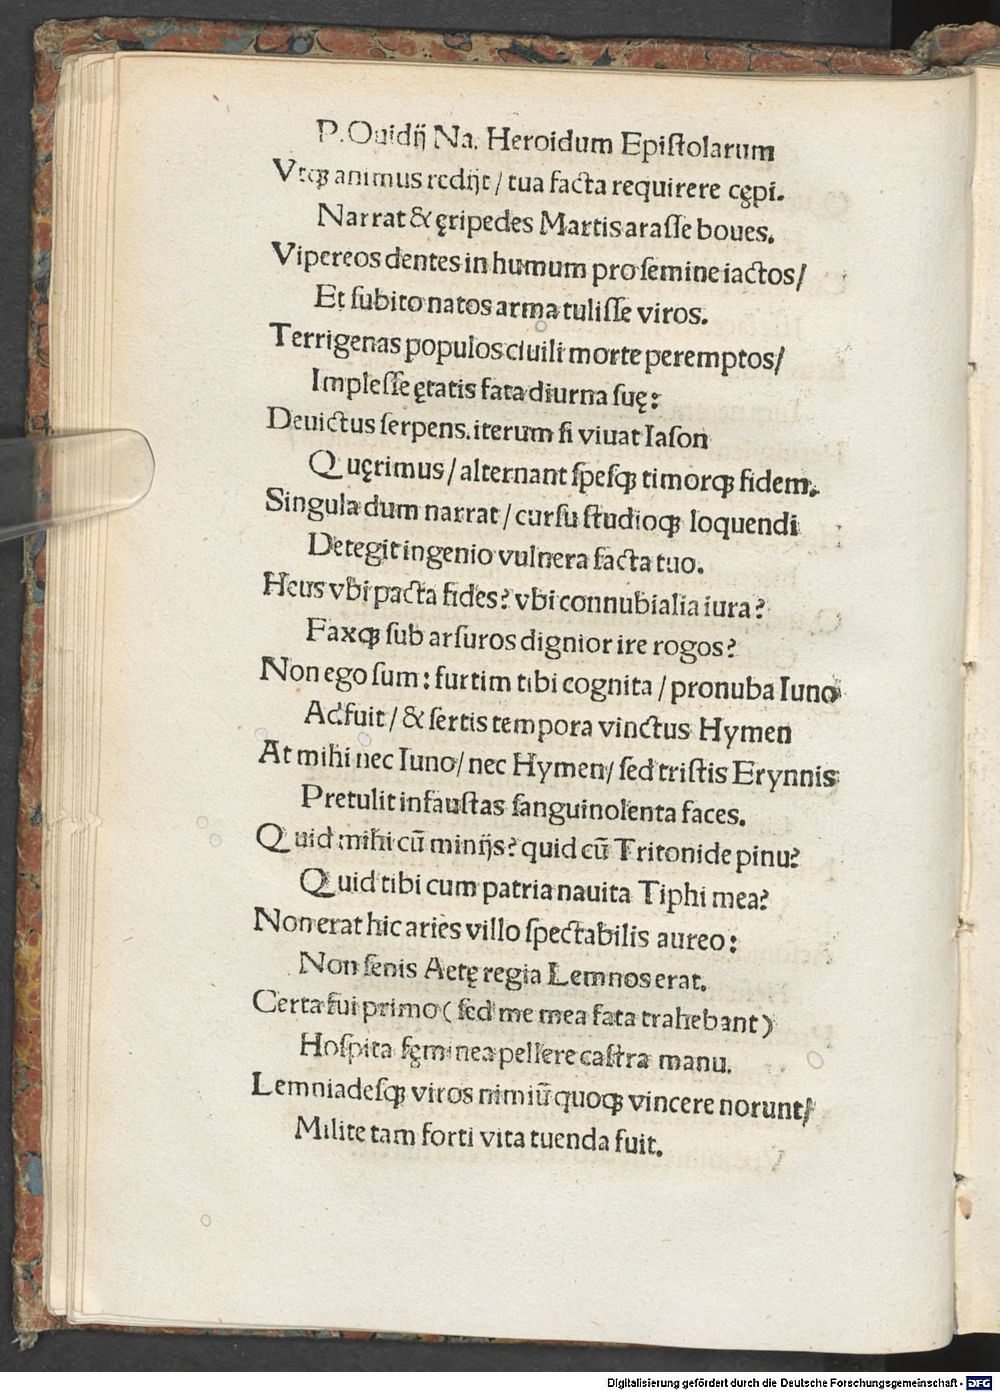 P. Ouidij Na. Heroidum Epiſtolarum
Vtqꝫ animus redijt / tua facta requirere cępi.
Narrat & ęripedes Martis araſſe boues.
Vipereos dentes in humum pro ſemine iactos /
Et ſubito natos arma tuliſſe viros.
Terrigenas populos ciuili morte peremptos /
Impleſſe ętatis fata diurna ſuę:
Deuictus ſerpens. iterum ſi viuat Iaſon
Quęrimus / alternant ſpeſqꝫ timorqꝫ fidem.
Singula dum narrat / curſu ſtudioqꝫ loquendi
Detegit ingenio vulnera facta tuo.
Heus vbi pacta fides? vbi connubialia iura?
Faxqꝫ ſub arſuros dignior ire rogos?
Non ego ſum: furtim tibi cognita / pronuba Iuno
Adfuit / & ſertis tempora vinctus Hymen
At mihi nec Iuno / nec Hymen / ſed triſtis Erynnis
Pretulit infauſtas ſanguinolenta faces.
Quid mihi cū minijs? quid cū Tritonide pinu?
Quid tibi cum patria nauita Tiphi mea?
Non erat hic aries villo ſpectabilis aureo:
Non ſenis Aetę regia Lemnos erat.
Certa fui primo ( ſed me mea fata trahebant )
Hoſpita fęminea pellere caſtra manu.
Lemniadeſqꝫ viros nimiū quoqꝫ vincere norunt /
Milite tam forti vita tuenda fuit.
Digitalisierung gefördert durch die Deutsche Forschungsgemeinschaft - DFG